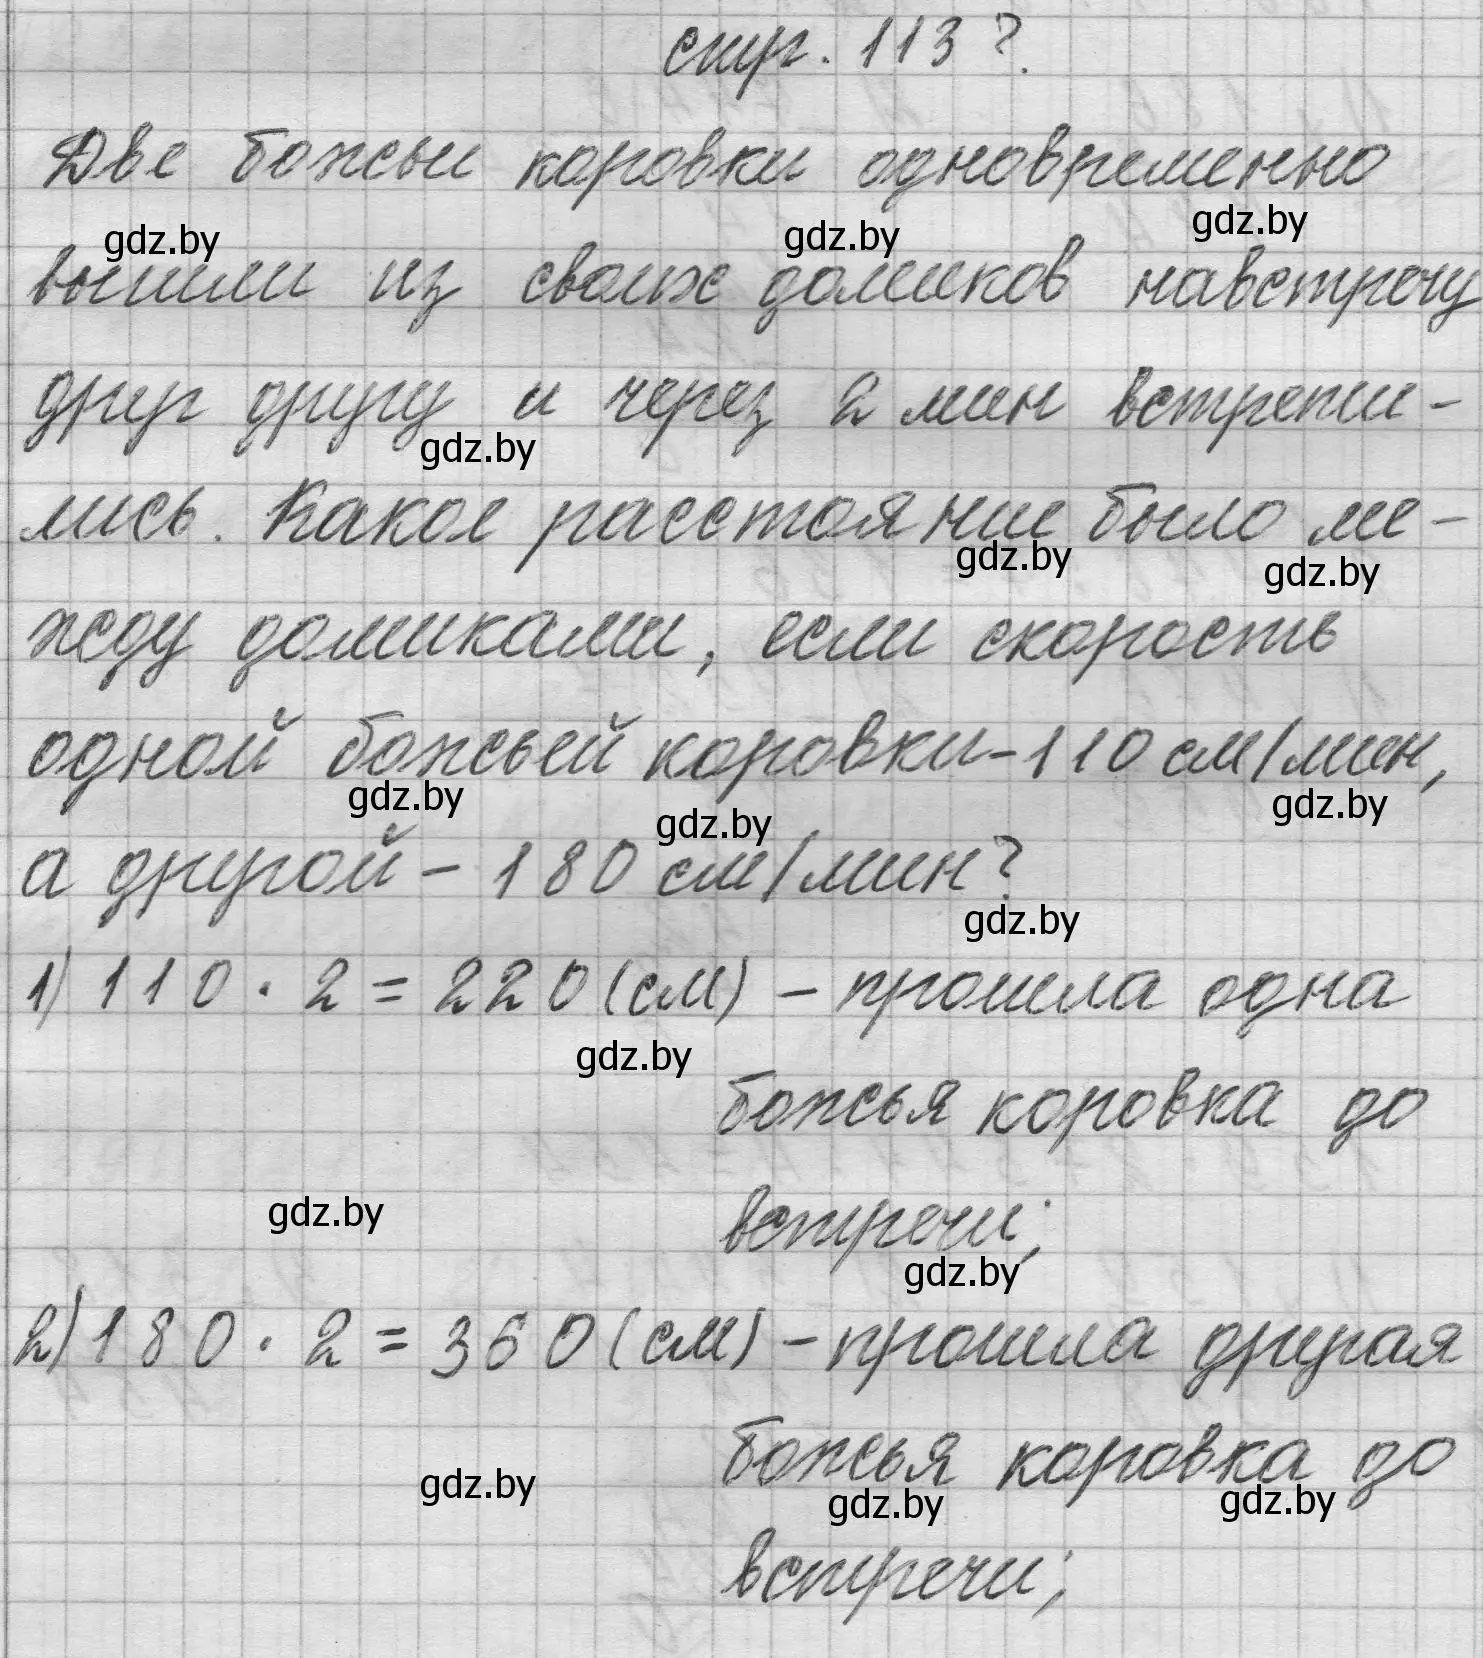 стр. 113 ?.
Две божьи коровки одновременно
gdz.by gdz.by gdz.by
вышли из своих домиков навстречу
друг другу и через 2 мин встрети-
gdz.by
лись. Какое расстояние было ме-
gdz.by gdz.by
жду домиками, если скорость
одной божьей коровки - 110 см/мин,
gdz.by gdz.by gdz.by
а другой - 180 см/мин?
gdz.by
1) 110 · 2 = 220 (см) - прошла одна
gdz.by
божья коровка до
gdz.by
встречи;
gdz.by
2) 180 · 2 = 360 (см) - прошла другая
божья коровка до
gdz.by gdz.by gdz.by
встречи;